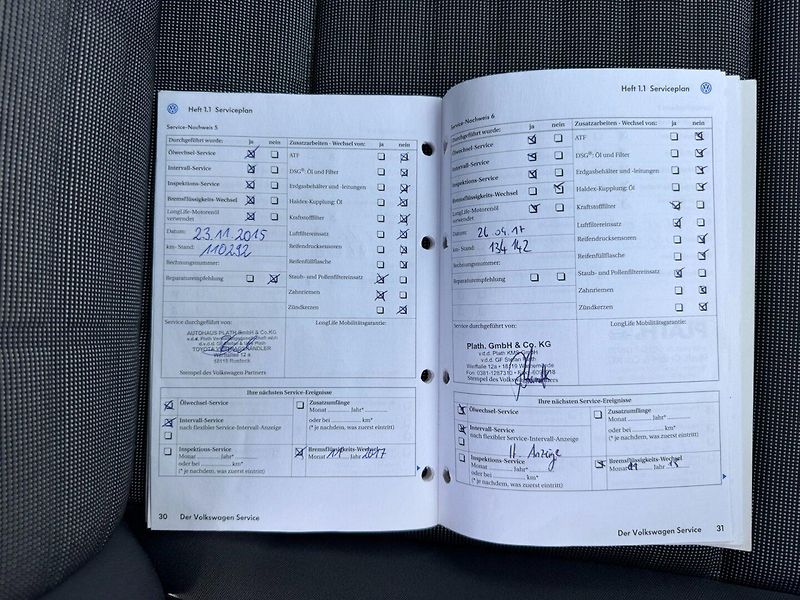 Heft 1.1 Serviceplan
Service-Nachweis 5
Durchgeführt wurde: ja nein
Ölwechsel-Service
Intervall-Service
Inspektions-Service
Bremsflüssigkeits-Wechsel
LongLife-Motorenöl
verwendet
Datum: 23.11.2015
km-Stand: 110292
Rechnungsnummer:
Reparaturempfehlung
Zusatzarbeiten - Wechsel von: ja nein
ATF
DSG®: Öl und Filter
Erdgasbehälter und -leitungen
Haldex-Kupplung: Öl
Kraftstofffilter
Luftfiltereinsatz
Reifendrucksensoren
Reifenfüllflasche
Staub- und Pollenfiltereinsatz
Zahnriemen
Zündkerzen
Service durchgeführt von:
AUTOHAUS PLATH GmbH & Co.KG
TOYOTA
Stempel des Volkswagen Partners
LongLife Mobilitätsgarantie:
Ihre nächsten Service-Ereignisse
Ölwechsel-Service
Intervall-Service
nach flexibler Service-Intervall-Anzeige
Inspektions-Service
Monat Jahr*
oder bei km*
(* je nachdem, was zuerst eintritt)
Zusatzumfänge
Monat Jahr*
oder bei km*
(* je nachdem, was zuerst eintritt)
Bremsflüssigkeits-Wechsel
Monat 11 Jahr 2017
30 Der Volkswagen Service
Heft 1.1 Serviceplan
Service-Nachweis 6
Durchgeführt wurde: ja nein
Ölwechsel-Service
Intervall-Service
Inspektions-Service
Bremsflüssigkeits-Wechsel
LongLife-Motorenöl
verwendet
Datum: 26.04.17
km-Stand: 134 142
Rechnungsnummer:
Reparaturempfehlung
Zusatzarbeiten - Wechsel von: ja nein
ATF
DSG®: Öl und Filter
Erdgasbehälter und -leitungen
Haldex-Kupplung: Öl
Kraftstofffilter
Luftfiltereinsatz
Reifendrucksensoren
Reifenfüllflasche
Staub- und Pollenfiltereinsatz
Zahnriemen
Zündkerzen
Service durchgeführt von:
Plath. GmbH & Co. KG
v.d.d. Plath KMS GmbH
v.d.d. GF Stefan Plath
Stempel des Volkswagen Partners
LongLife Mobilitätsgarantie:
Ihre nächsten Service-Ereignisse
Ölwechsel-Service
Intervall-Service
nach flexibler Service-Intervall-Anzeige
Inspektions-Service
Monat Jahr*
oder bei km*
(* je nachdem, was zuerst eintritt)
Anzeige
Zusatzumfänge
Monat Jahr*
oder bei km*
(* je nachdem, was zuerst eintritt)
Bremsflüssigkeits-Wechsel
Monat Jahr
Der Volkswagen Service 31